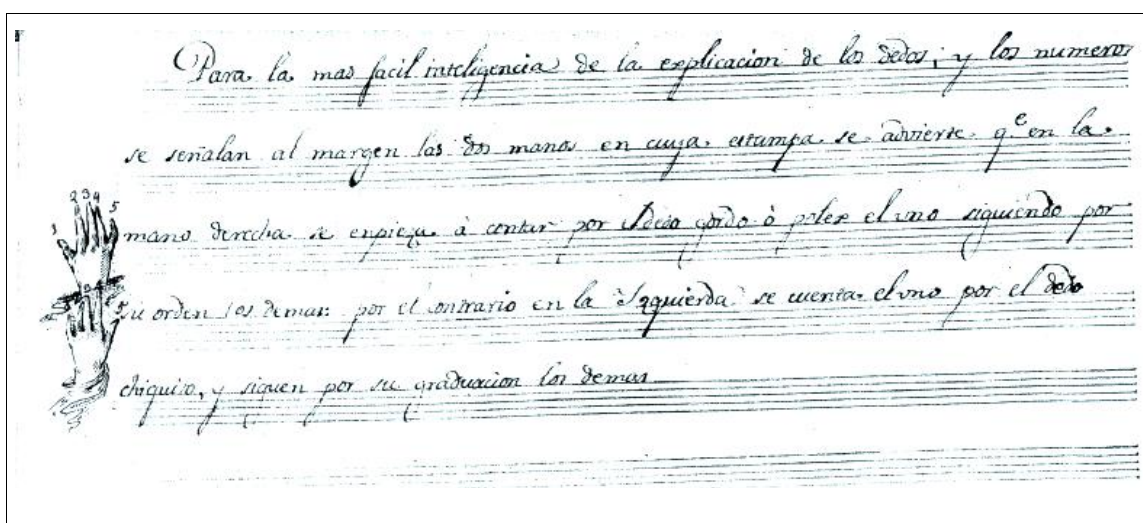 Para la mas facil inteligencia de la explicacion de los dedos, y los numeros
se señalan al margen las dos manos en cuya estampa se advierte q.e en la
mano derecha se enpieza à contar por el dedo gordo ò polex el uno siguiendo por
su orden los demas: por el contrario en la Izquierda se cuenta el uno por el dedo
chiquito, y siguen por su graduacion los demas
1 2 3 4 5